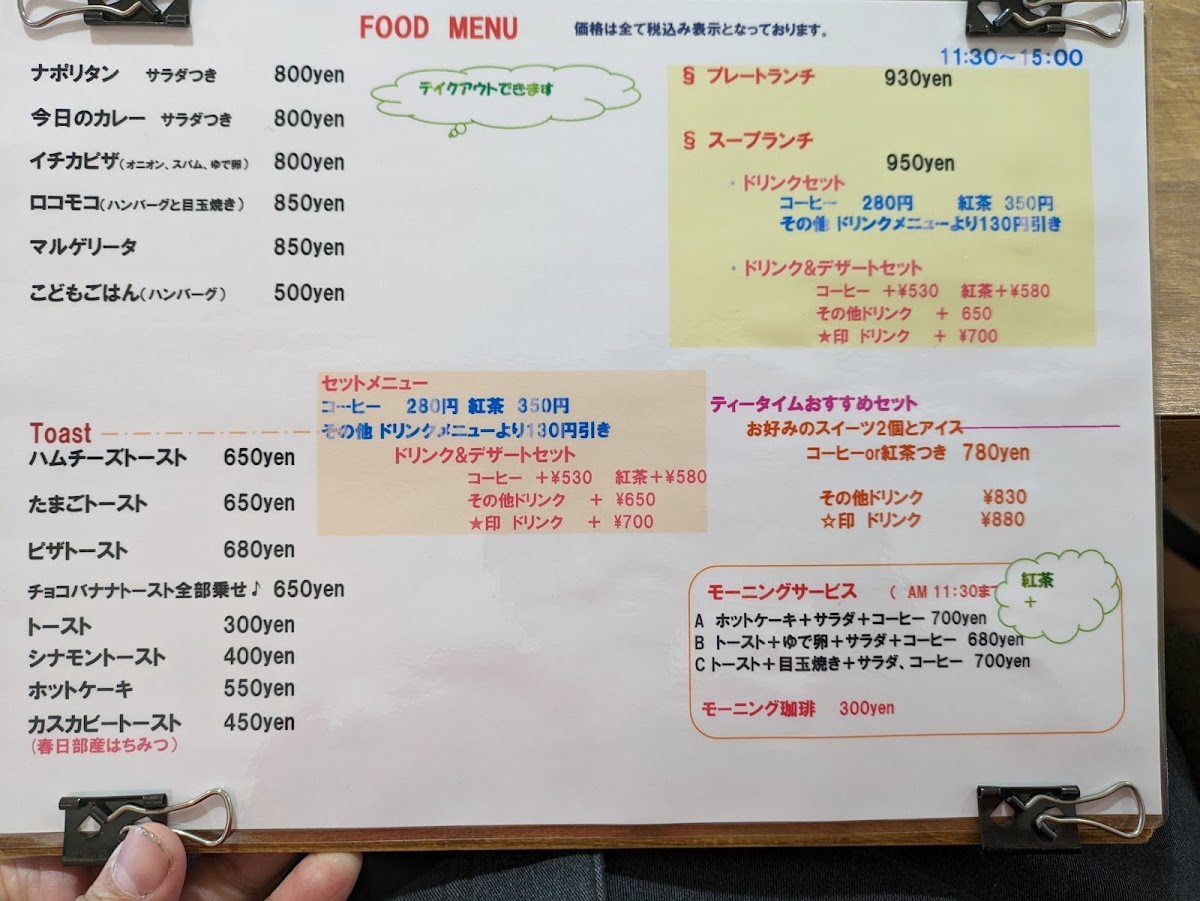 FOOD MENU
価格は全て税込み表示となっております。
ナポリタン サラダつき 800yen
今日のカレー サラダつき 800yen
イチカピザ(オニオン、スパム、ゆで卵) 800yen
ロコモコ(ハンバーグと目玉焼き) 850yen
マルゲリータ 850yen
こどもごはん(ハンバーグ) 500yen
テイクアウトできます
11:30～15:00
§ プレートランチ 930yen
§ スープランチ
950yen
・ドリンクセット
コーヒー 280円 紅茶 350円
その他 ドリンクメニューより130円引き
・ドリンク&デザートセット
コーヒー +¥530 紅茶+¥580
その他ドリンク + 650
★印 ドリンク + ¥700
Toast
ハムチーズトースト 650yen
たまごトースト 650yen
ピザトースト 680yen
チョコバナナトースト全部乗せ♪ 650yen
トースト 300yen
シナモントースト 400yen
ホットケーキ 550yen
カスカビートースト 450yen
(春日部産はちみつ)
セットメニュー
コーヒー 280円 紅茶 350円
その他 ドリンクメニューより130円引き
ドリンク&デザートセット
コーヒー +¥530 紅茶+¥580
その他ドリンク + ¥650
★印 ドリンク + ¥700
ティータイムおすすめセット
お好みのスイーツ2個とアイス
コーヒーor紅茶つき 780yen
その他ドリンク ¥830
☆印 ドリンク ¥880
モーニングサービス ( AM 11:30まで
紅茶
+
A ホットケーキ+サラダ+コーヒー 700yen
B トースト+ゆで卵+サラダ+コーヒー 680yen
C トースト+目玉焼き+サラダ、コーヒー 700yen
モーニング珈琲 300yen